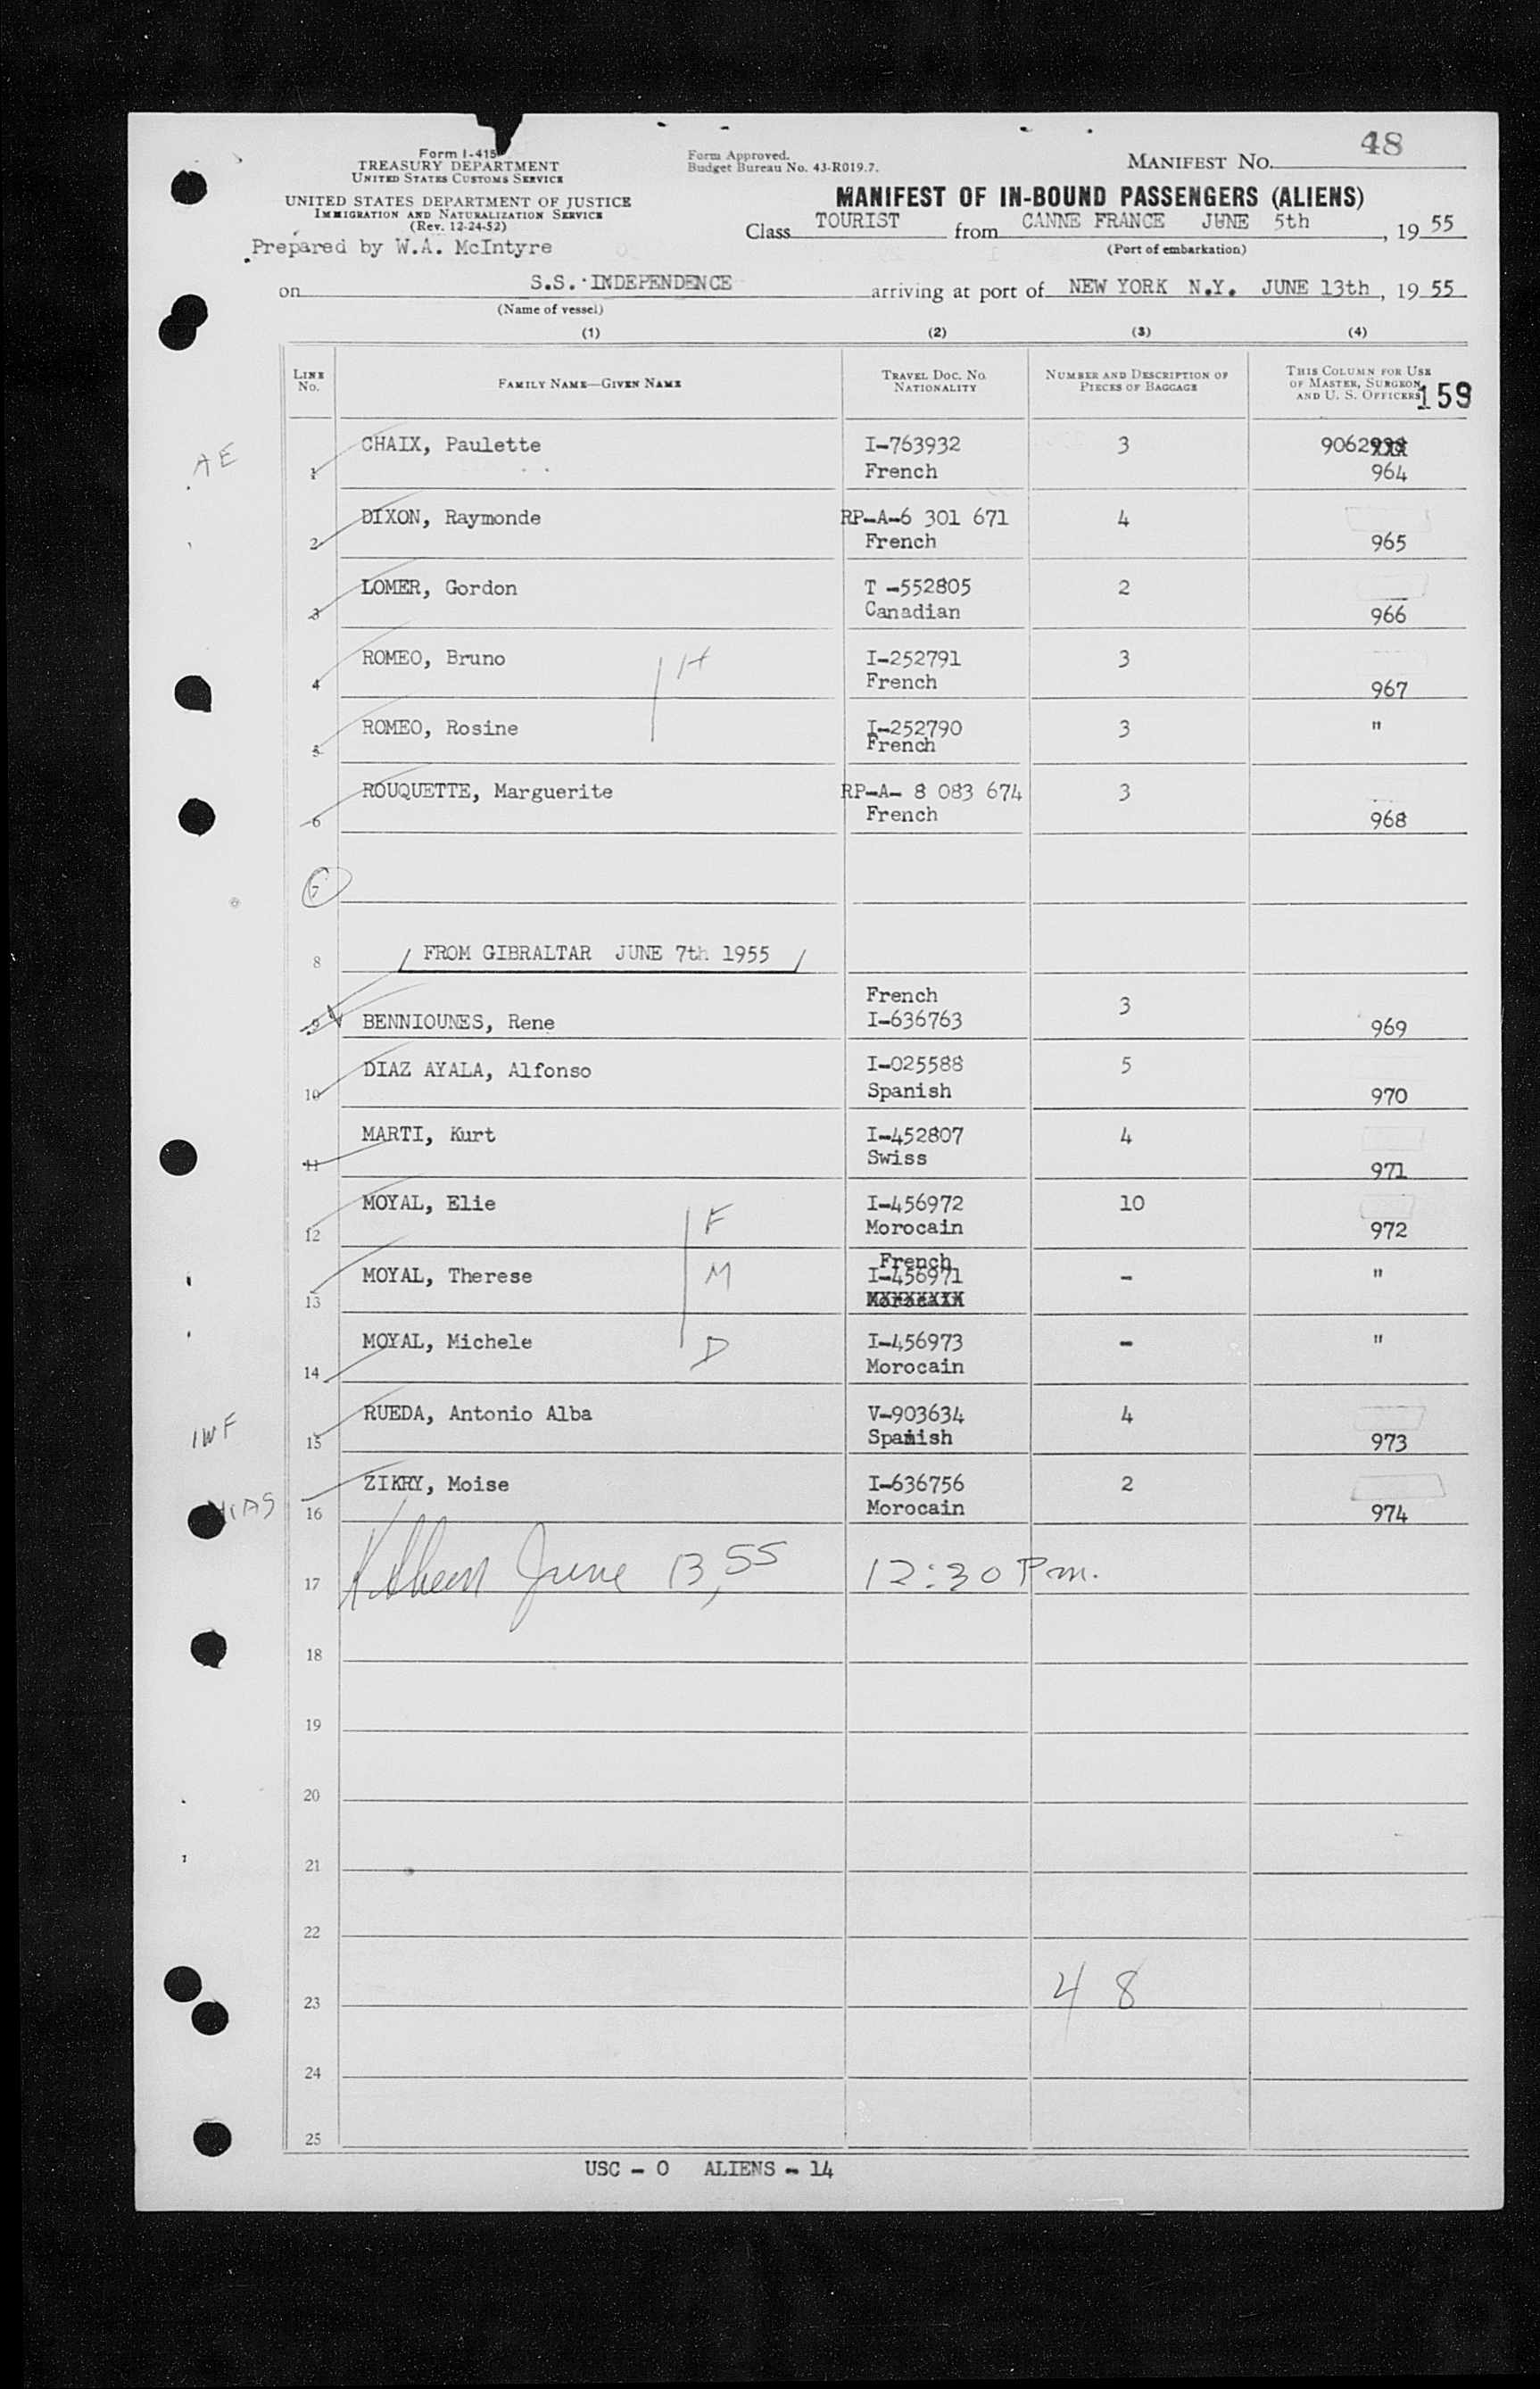 Form I-415
TREASURY DEPARTMENT
UNITED STATES CUSTOMS SERVICE
UNITED STATES DEPARTMENT OF JUSTICE
IMMIGRATION AND NATURALIZATION SERVICE
(Rev. 12-24-52)
Prepared by W.A. McIntyre
Form Approved.
Budget Bureau No. 43-R019.7.
MANIFEST NO. 48
MANIFEST OF IN-BOUND PASSENGERS (ALIENS)
Class TOURIST from CANNE FRANCE JUNE 5th, 19 55
(Port of embarkation)
on S.S. INDEPENDENCE arriving at port of NEW YORK N.Y. JUNE 13th, 19 55
(Name of vessel)
(1) (2) (3) (4)
LINE NO. FAMILY NAME—GIVEN NAME TRAVEL DOC. NO. NATIONALITY NUMBER AND DESCRIPTION OF PIECES OF BAGGAGE THIS COLUMN FOR USE OF MASTER, SURGEON, AND U. S. OFFICERS 159
AE 1 CHAIX, Paulette I-763932 3 9062
French 964
2 DIXON, Raymonde RP-A-6 301 671 4
French 965
3 LOMER, Gordon T -552805 2
Canadian 966
4 ROMEO, Bruno H I-252791 3
French 967
5 ROMEO, Rosine I-252790 3 "
French
6 ROUQUETTE, Marguerite RP-A- 8 083 674 3
French 968
7
8 / FROM GIBRALTAR JUNE 7th 1955 /
French
9 BENNIOUNES, Rene I-636763 3 969
10 DIAZ AYALA, Alfonso I-025588 5
Spanish 970
11 MARTI, Kurt I-452807 4
Swiss 971
12 MOYAL, Elie F I-456972 10
Morocain 972
French
13 MOYAL, Therese M I-456971 - "
14 MOYAL, Michele D I-456973 - "
Morocain
IWF 15 RUEDA, Antonio Alba V-903634 4
Spanish 973
HIAS 16 ZIKRY, Moise I-636756 2
Morocain 974
17 June 13, 55 12:30 Pm.
18
19
20
21
22
23 48
24
25
USC - 0 ALIENS - 14